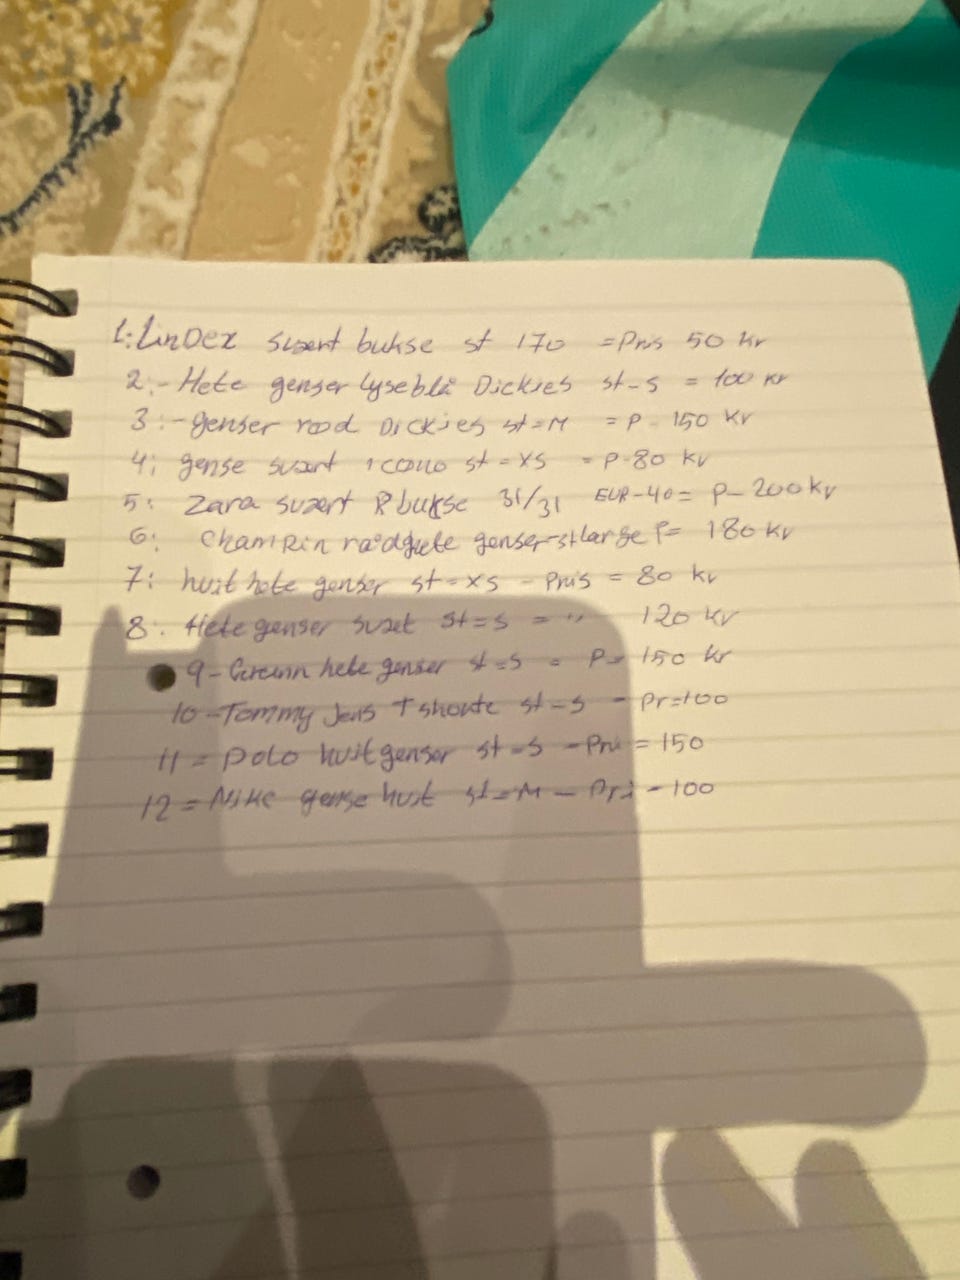 1: LinDex svart bukse st 170 = Pris 50 Kr
2:- Hete genser lyseblå Dickies st-s = 100 Kr
3:- genser rød Dickies st=M = P- 150 Kr
4: gense svart st=xs = P-80 Kr
5: Zara svart bukse 31/31 EUR-40= P-200 Kr
6: Champin genser-st large P= 180 Kr
7: huit hete genser st=xs - Pris = 80 Kr
8: Hete genser svart st=s = " 120 Kr
9- hete genser st=s = P= 150 Kr
10-Tommy Jens Tshorte st-s - Pr=100
11= Polo huit genser st=s -Pri = 150
12= Nike gense huit st=M - Pri - 100